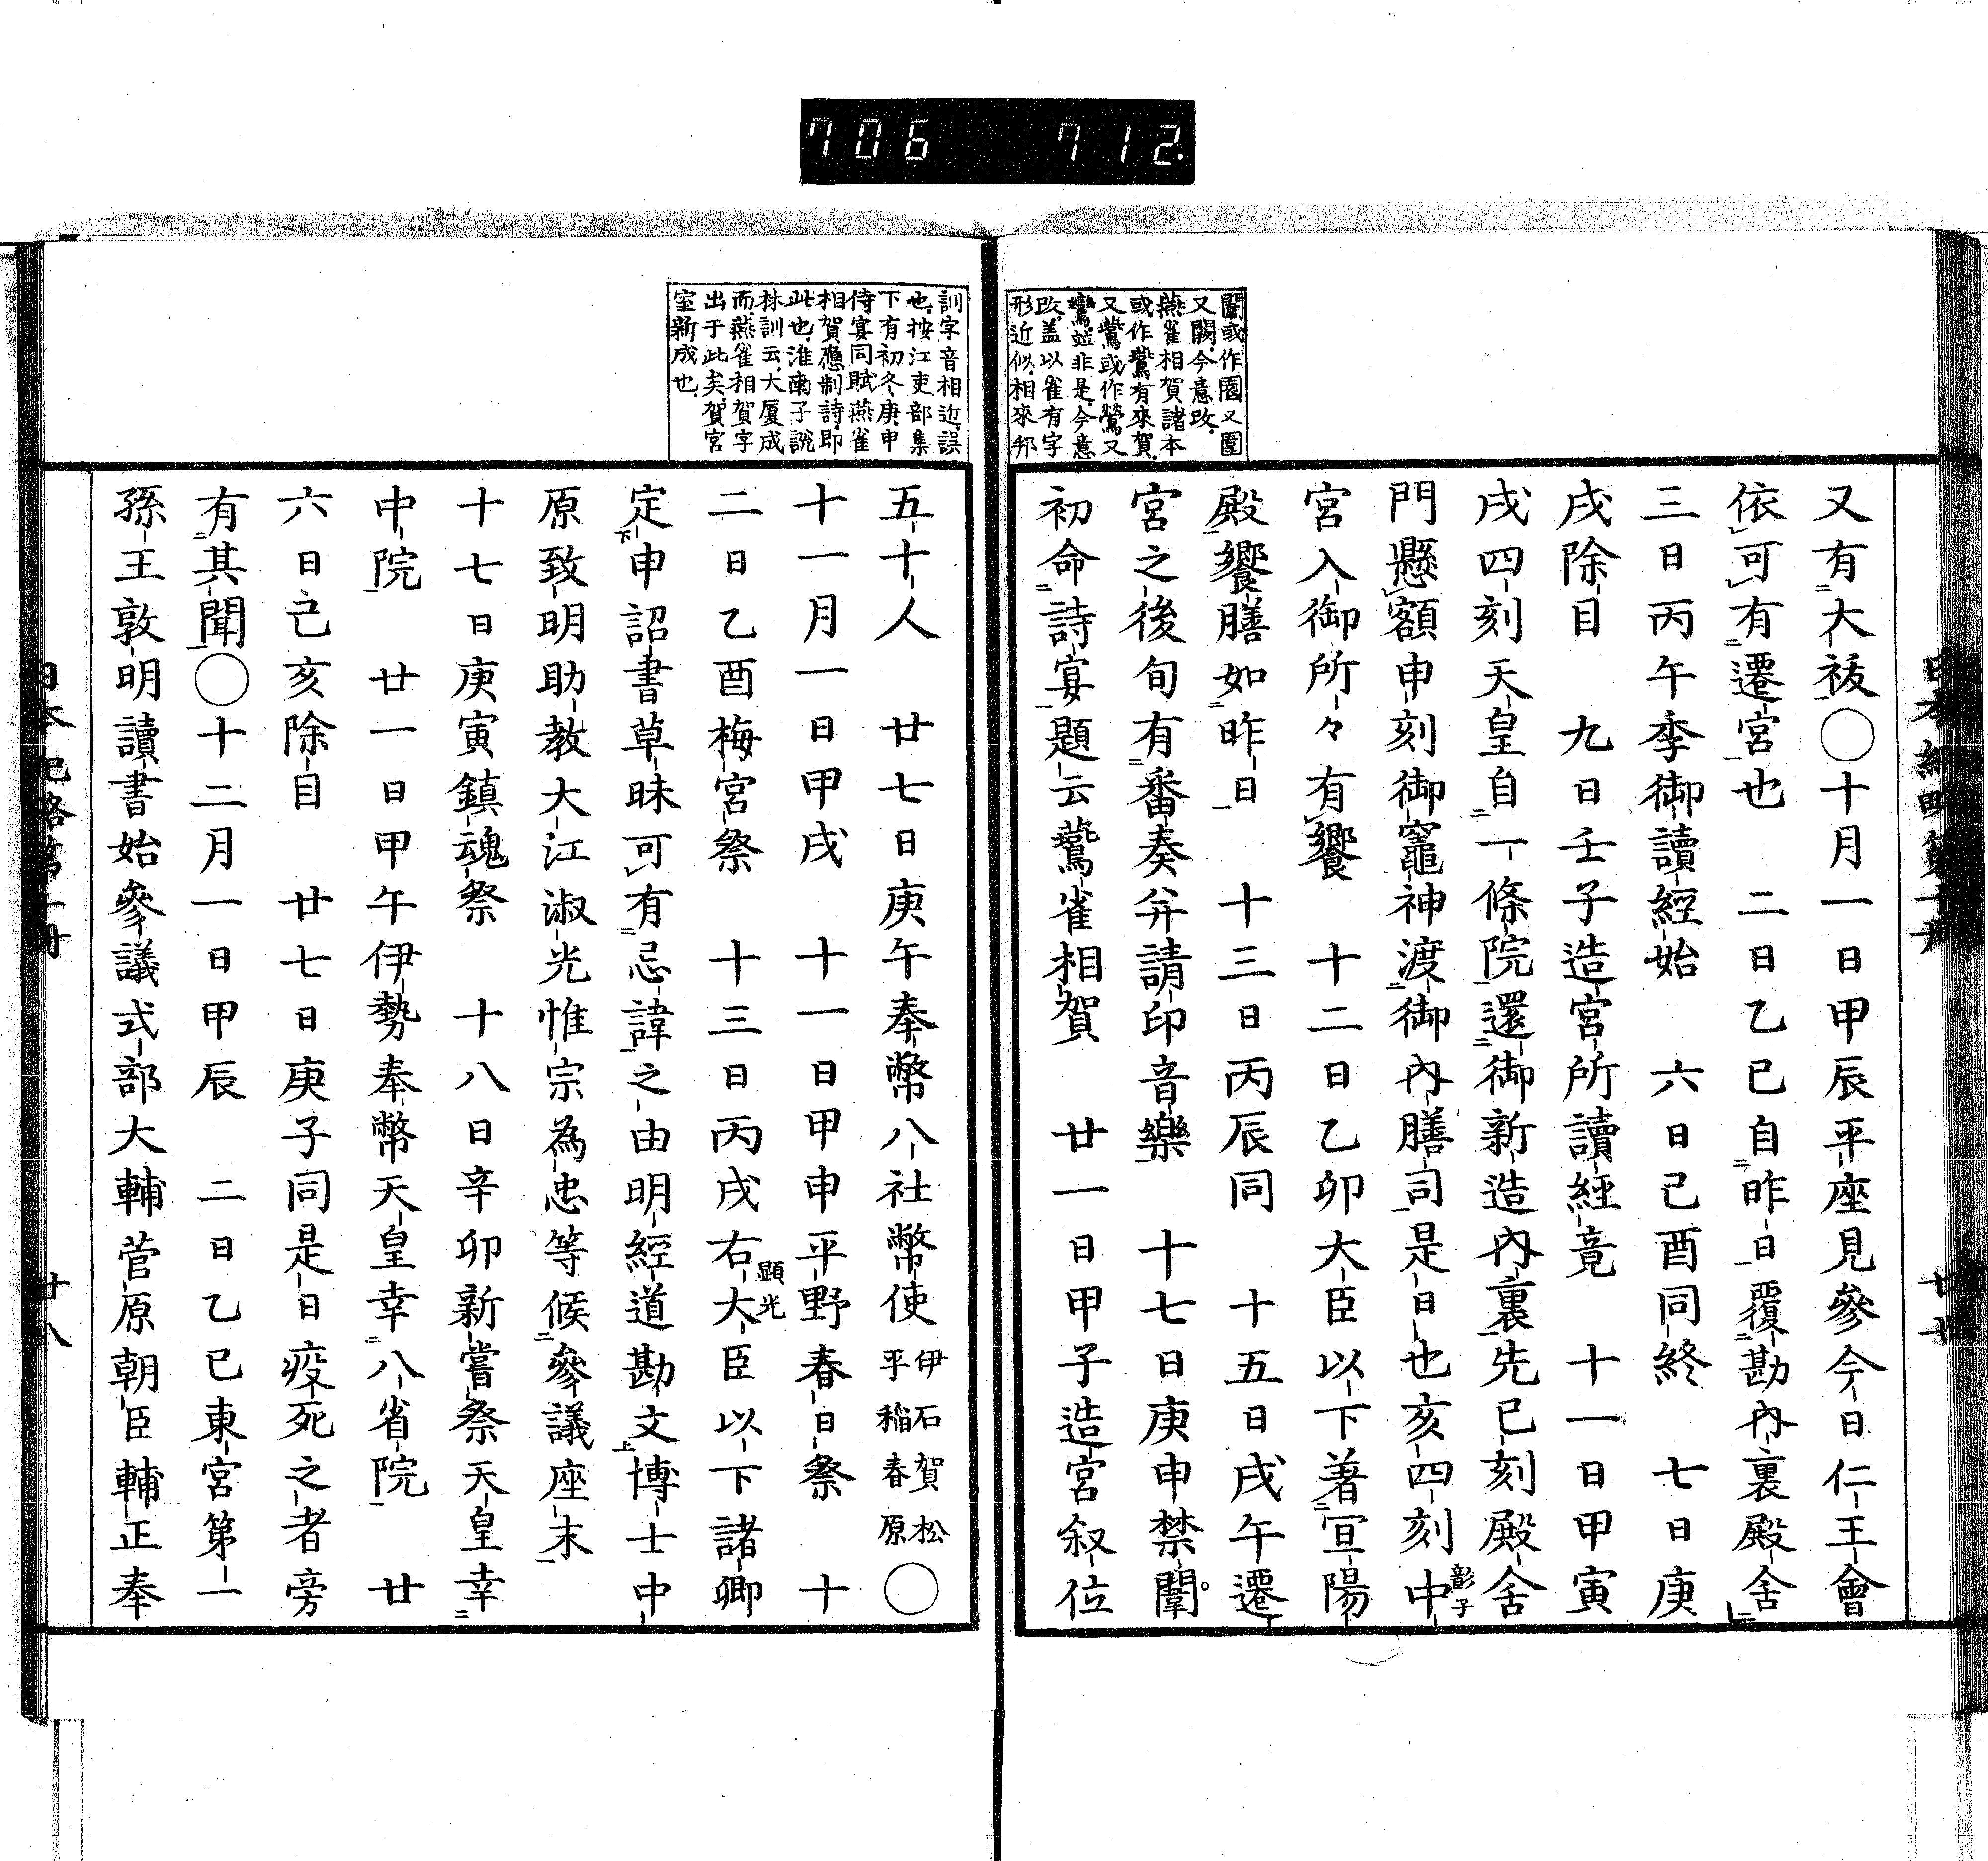 706 712.
闈或作園又圍
又闕今意改
燕雀相賀諸本
或作鷰有來賀
又鷰或作鶯又
鸞並非是今意
改盖以雀有字
形近似相來邦
又有大祓○十月一日甲辰平座見參今日仁王會
依可有遷宮也 二日乙巳自昨日覆勘內裏殿舍
三日丙午季御讀經始 六日己酉同終 七日庚
戌除目 九日壬子造宮所讀經竟 十一日甲寅
戌四刻天皇自一條院還御新造內裏先已刻殿舍
門懸額申刻御竈神渡御內膳司是日也亥四刻中彰子
宮入御所々有饗 十二日乙卯大臣以下著宣陽
殿饗膳如昨日 十三日丙辰同 十五日戌午遷
宮之後旬有番奏并請印音樂 十七日庚申禁闈
初命詩宴題云鷰雀相賀 廿一日甲子造宮叙位
訓字音相近誤
也按江吏部集
下有初冬庚申
侍宴同賦燕雀
相賀應制詩即
此也淮南子說
林訓云大厦成
而燕雀相賀字
出于此矣賀宮
室新成也
五十人 廿七日庚午奉幣八社幣使伊石賀松平稲春原○
十一月一日甲戌 十一日甲申平野春日祭 十
二日乙酉梅宮祭 十三日丙戌右大臣顯光以下諸卿
定申詔書草昧可有忌諱之由明經道勘文博士中
原致明助教大江淑光惟宗為忠等候參議座末
十七日庚寅鎮魂祭 十八日辛卯新嘗祭天皇幸
中院 廿一日甲午伊勢奉幣天皇幸八省院 廿
六日己亥除目 廿七日庚子同是日疫死之者旁
有其聞○十二月一日甲辰 二日乙巳東宮第一
孫王敦明讀書始參議式部大輔菅原朝臣輔正奉
廿八